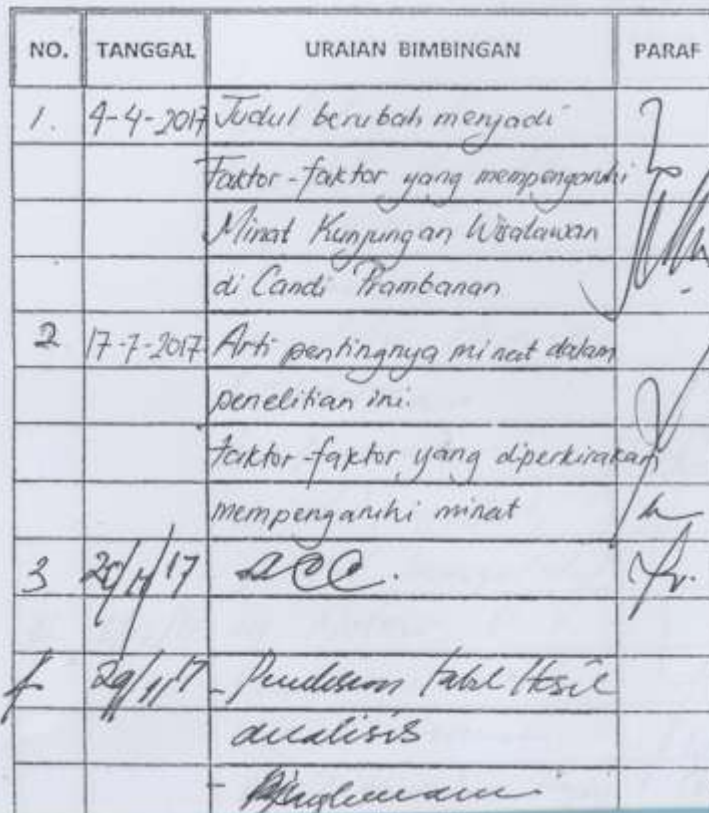 NO. TANGGAL URAIAN BIMBINGAN PARAF
1. 4-4-2017 Judul berubah menjadi
Faktor-faktor yang mempengaruhi
Minat Kunjungan Wisatawan
di Candi Prambanan
2 17-7-2017 Arti pentingnya minat dalam
penelitian ini.
Faktor-faktor yang diperkirakan
mempengaruhi minat
3 ACC.
29/11/17 - Tabel Hasil
analisis
-